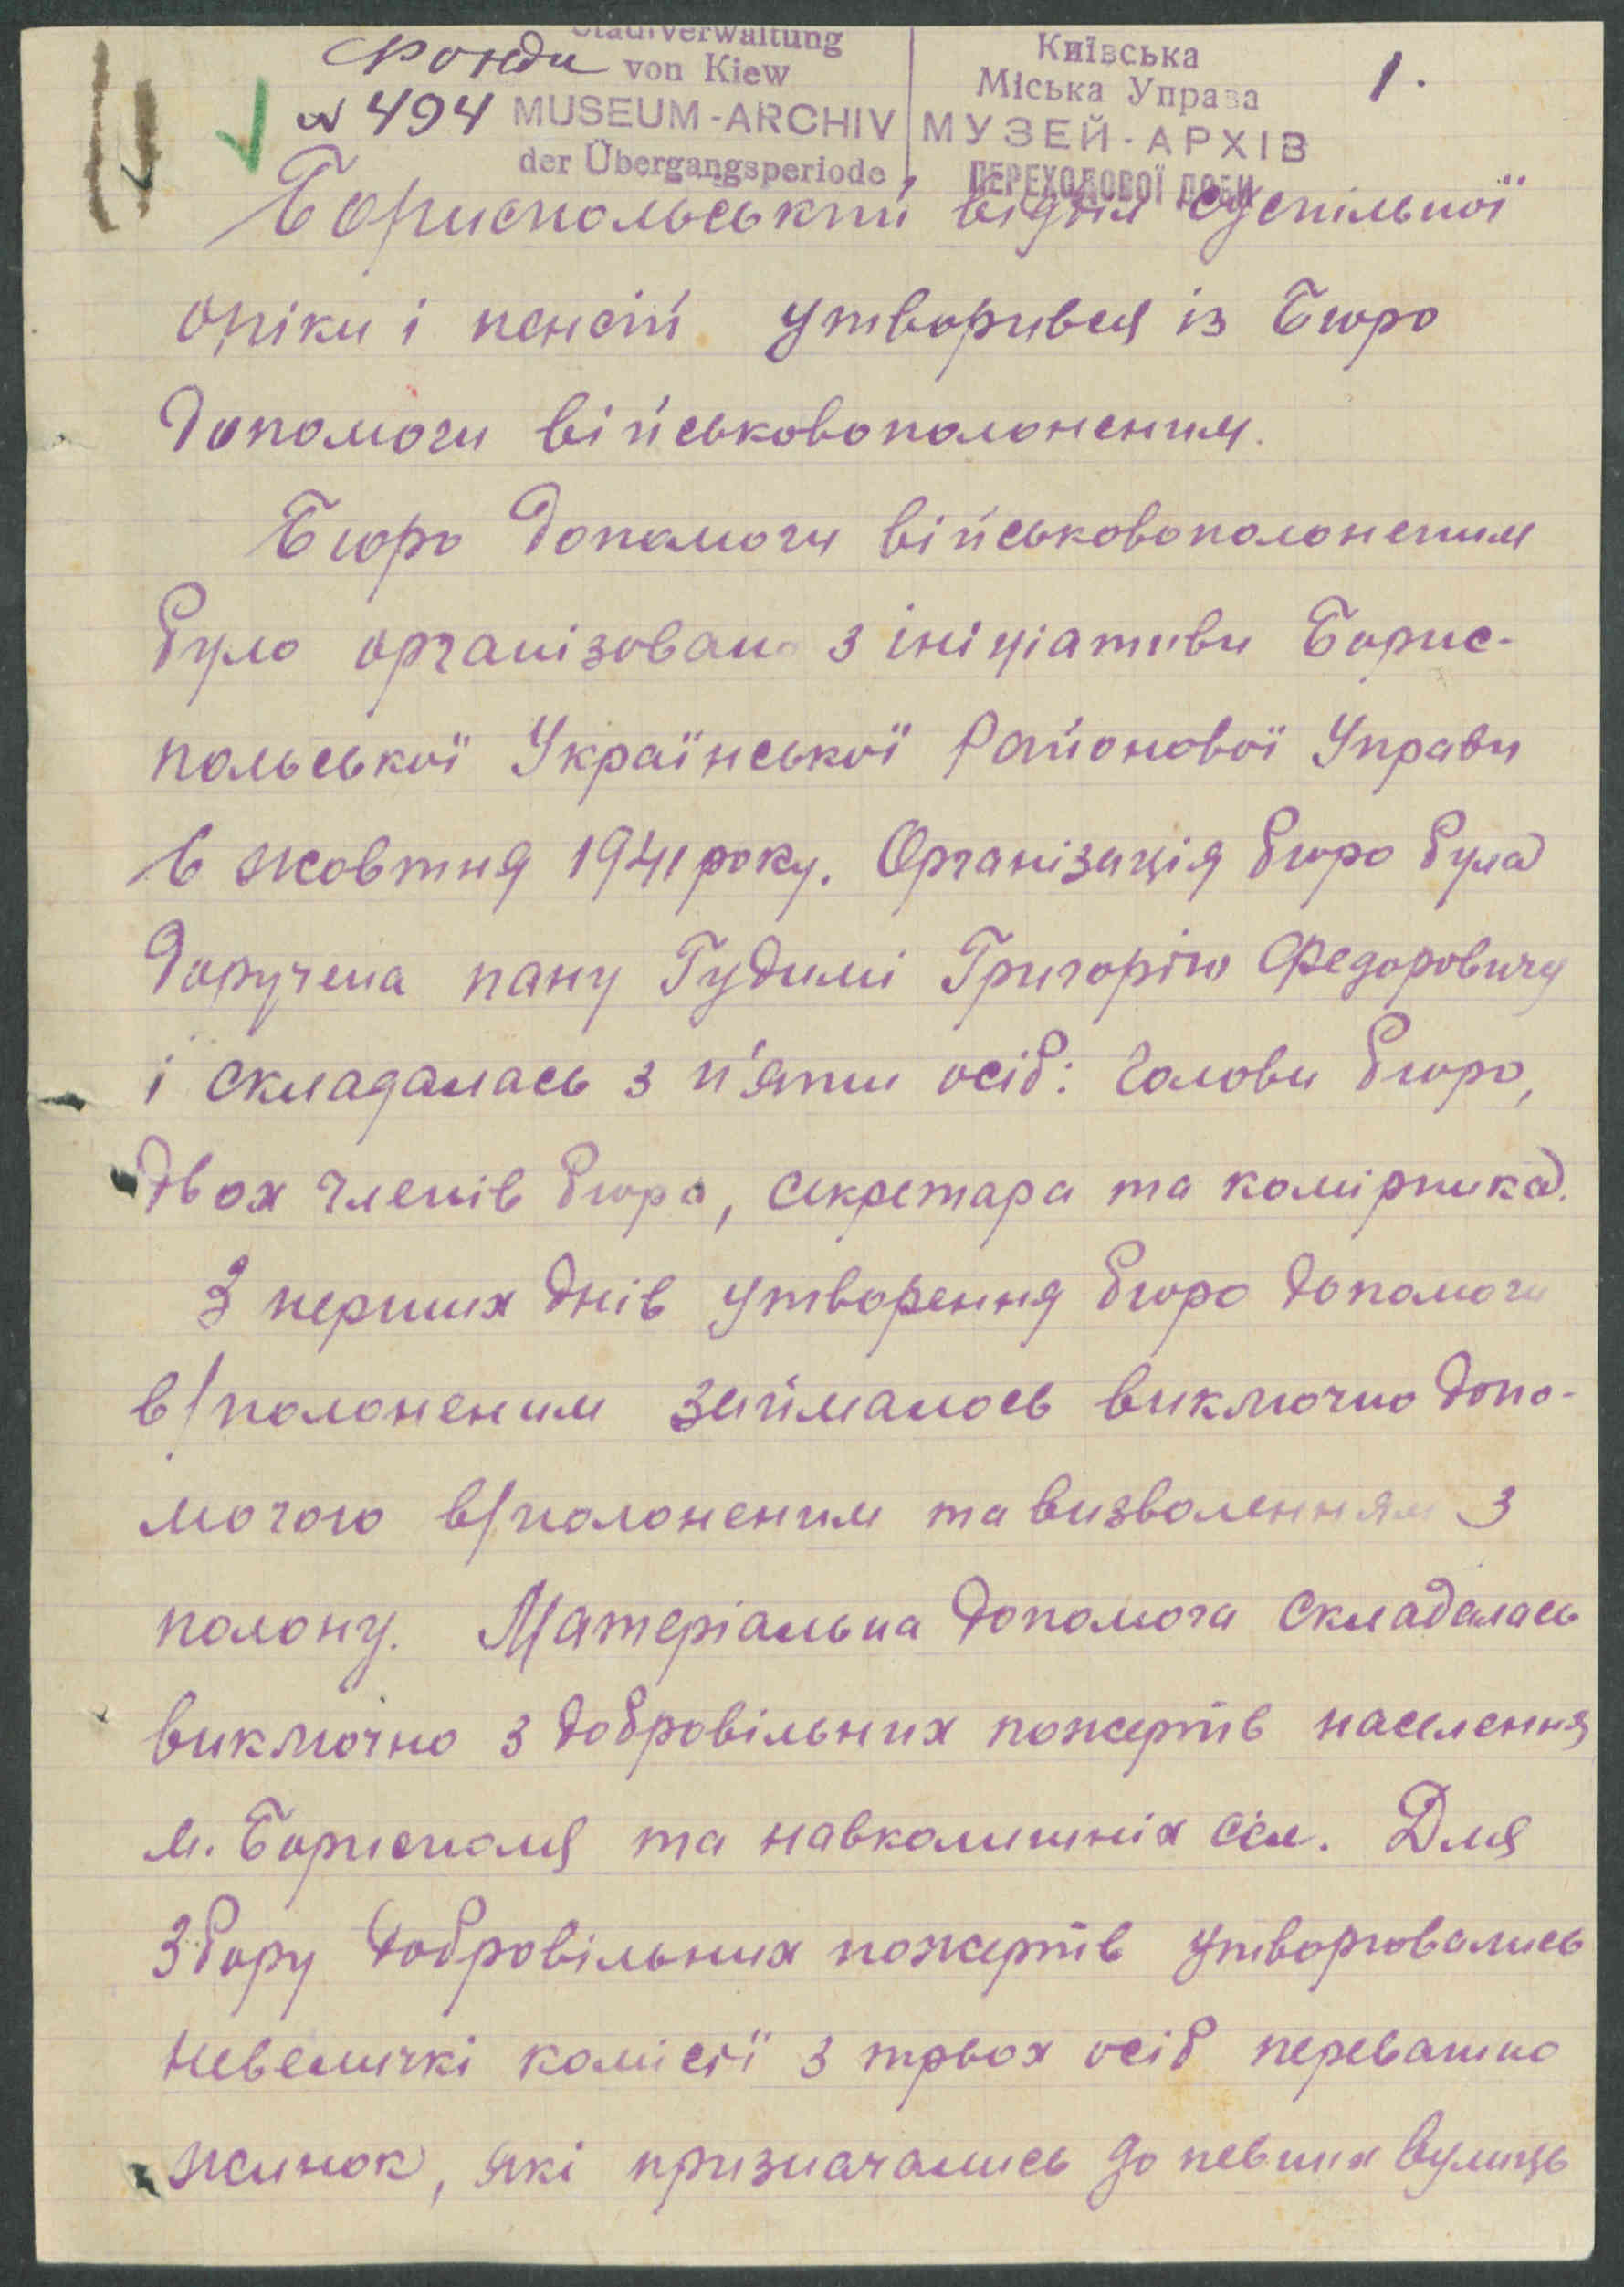 Фонди
№ 494
Stadtverwaltung
von Kiew
MUSEUM-ARCHIV
der Übergangsperiode
Київська
Міська Управа
МУЗЕЙ-АРХІВ
ПЕРЕХОДОВОЇ ДОБИ
1.
Бориспольський відділ суспільної
опіки і пенсій утворився із Бюро
допомоги військовополоненим.
Бюро допомоги військовополоненим
було організовано з ініціативи Борис-
польської Української Районової Управи
в жовтня 1941 року. Організація бюро була
доручена пану Гудимі Григорію Федоровичу
і складалась з п'яти осіб: голови бюро,
двох членів бюро, секретара та комірника.
З перших днів утворення бюро допомоги
в/полоненим займалось виключно допо-
могою в/полоненим та визволенням з
полону. Матеріальна допомога складалась
виключно з добровільних пожертв населення
м. Борисполя та навколишніх сіл. Для
збору добровільних пожертв утворювались
невеличкі комісії з трьох осіб переважно
жинок, які призначались до певних вулиць